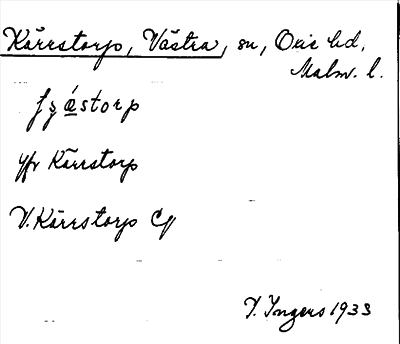 Kärrstorp, Västra, sn, Oxie hd,
Malm. l.
jfr Kärrstorp
V. Kärrstorp
I. Ingers 1933